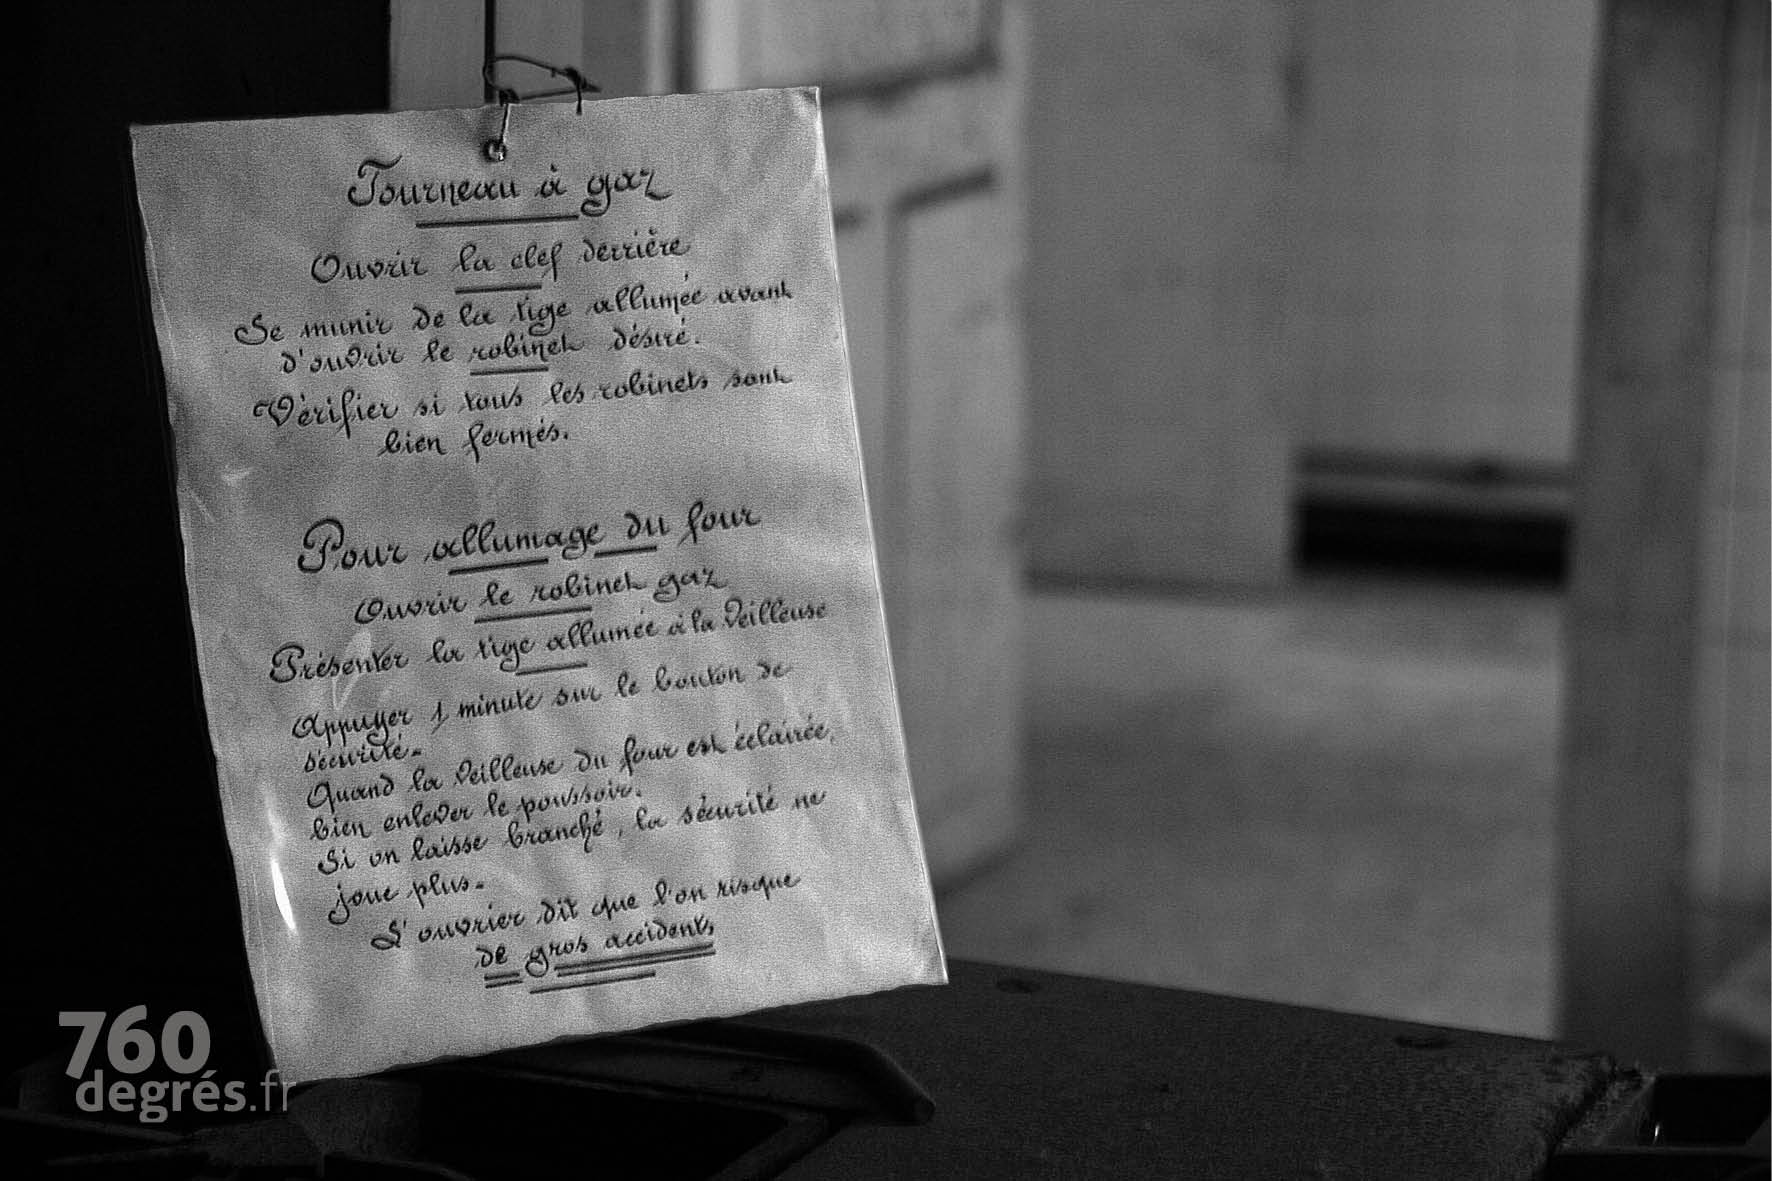 Fourneau à gaz
Ouvrir la clef derrière
Se munir de la tige allumée avant
d'ouvrir le robinet désiré.
Vérifier si tous les robinets sont
bien fermés.
Pour allumage du four
Ouvrir le robinet gaz
Présenter la tige allumée à la Veilleuse
Appuyer 1 minute sur le bouton de
sécurité.
Quand la Veilleuse du four est éclairée,
bien enlever le poussoir.
Si on laisse branché, la sécurité ne
joue plus.
L'ouvrier dit que l'on risque
de gros accidents
760
degrés.fr